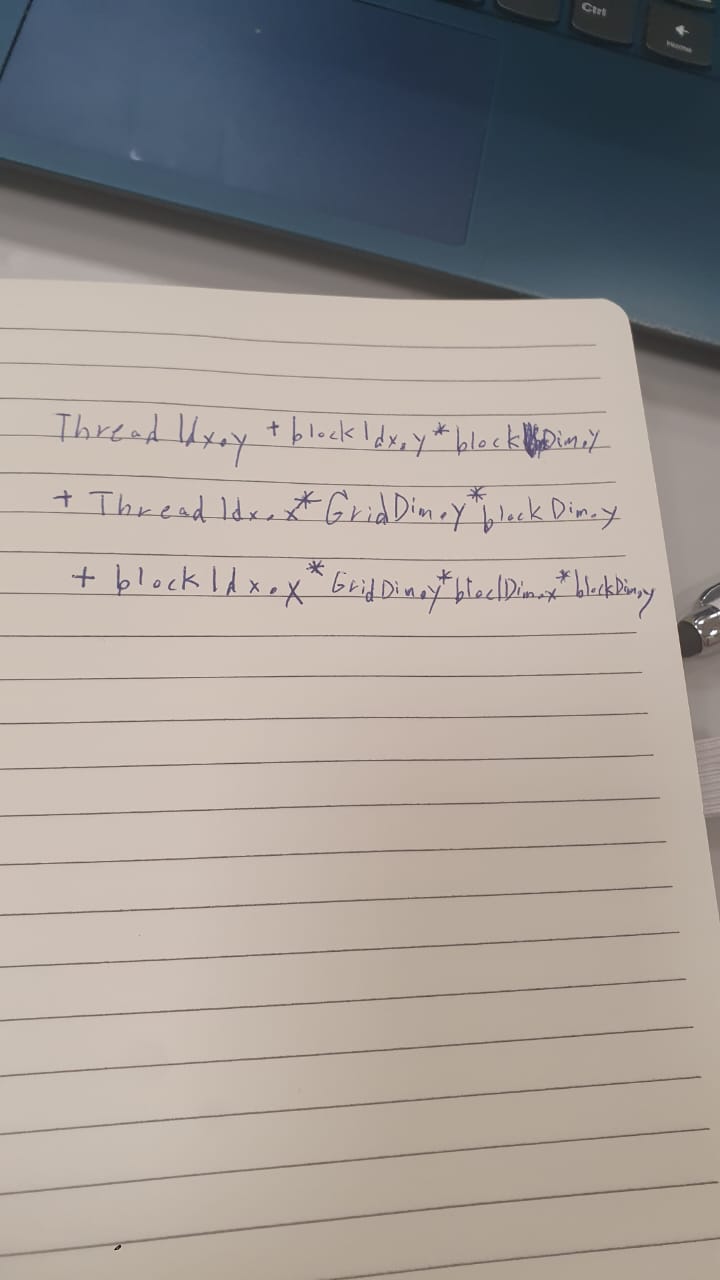 Ctrl
Home
Thread Idx.y + blockIdx.y * blockDim.y
+ Thread Idx.x * GridDim.y * blockDim.y
+ blockIdx.x * GridDim.y * bloclDim.x * blockDim.y